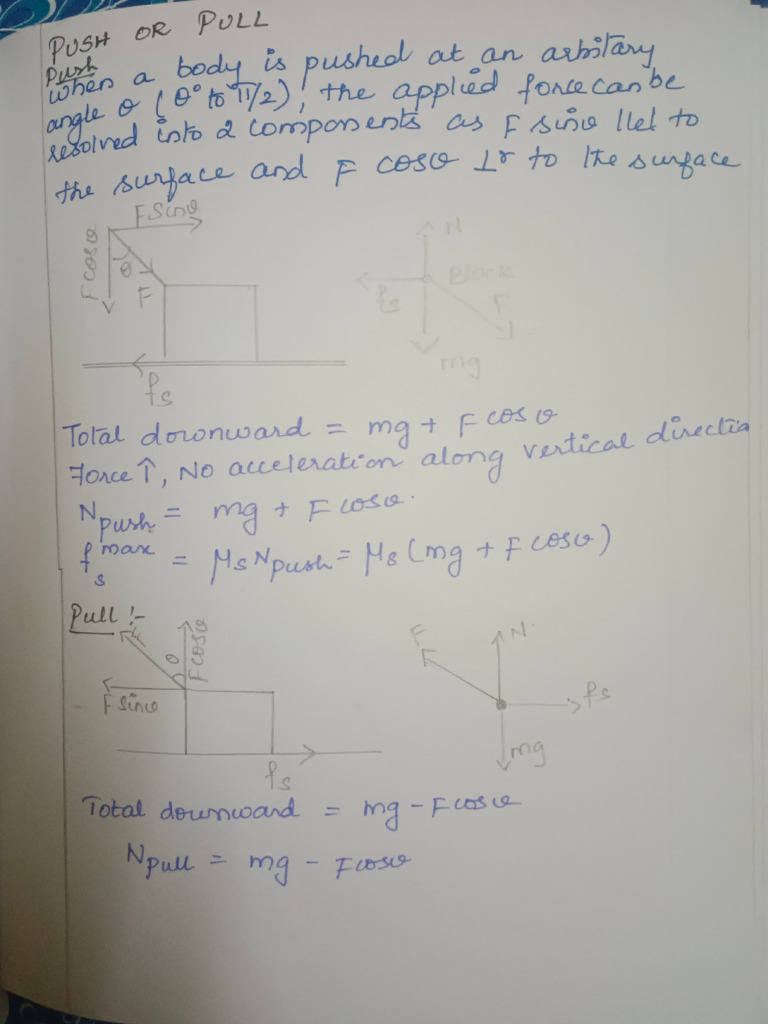 PUSH OR PULL
Push
when a body is pushed at an arbitary
angle θ (0° to π/2), the applied force can be
resolved into 2 components as F sinθ llel to
the surface and F cosθ ⊥r to the surface
F Sinθ
F cosθ
θ
F
fs
N
Block
fs
F
mg
Total downward = mg + F cosθ
Force ↑, No acceleration along vertical directio
N push = mg + F cosθ.
fs max = μs N push = μs (mg + F cosθ)
Pull :-
F
θ
F cosθ
F sinθ
fs
F
N
fs
mg
Total downward = mg - F cosθ
N pull = mg - F cosθ